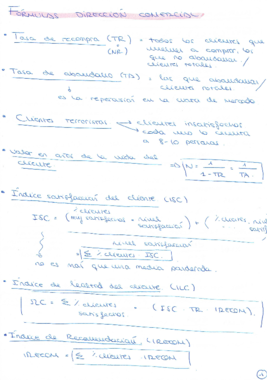 FÓRMULAS DIRECCIÓN COMERCIAL
• Tasa de recompra (TR) → todos los clientes que
(NR) vuelven a comprar, los
que no abandonan /
clientes totales
• Tasa de abandono (TA) : los que abandonan /
clientes totales
es la reposición en la cuota de mercado
• Clientes terroristas → clientes insatisfechos
cada uno lo cuenta
a 8-10 personas.
• Valor en años de la vida del
cliente => N = 1 / 1-TR = 1 / TA
• Índice satisfacción del cliente (ISC)
ISC = (% clientes muy satisfechos × nivel satisfacción) + (% clientes, nivel
nivel satisfacción
= Σ % clientes ISC
no es más que una media ponderada.
• Índice de lealtad del cliente (ILC)
ILC = Σ % clientes satisfechos (ISC · TR · IRECOM)
• Índice de Recomendación (IRECOM)
IRECOM = Σ % clientes IRECOM